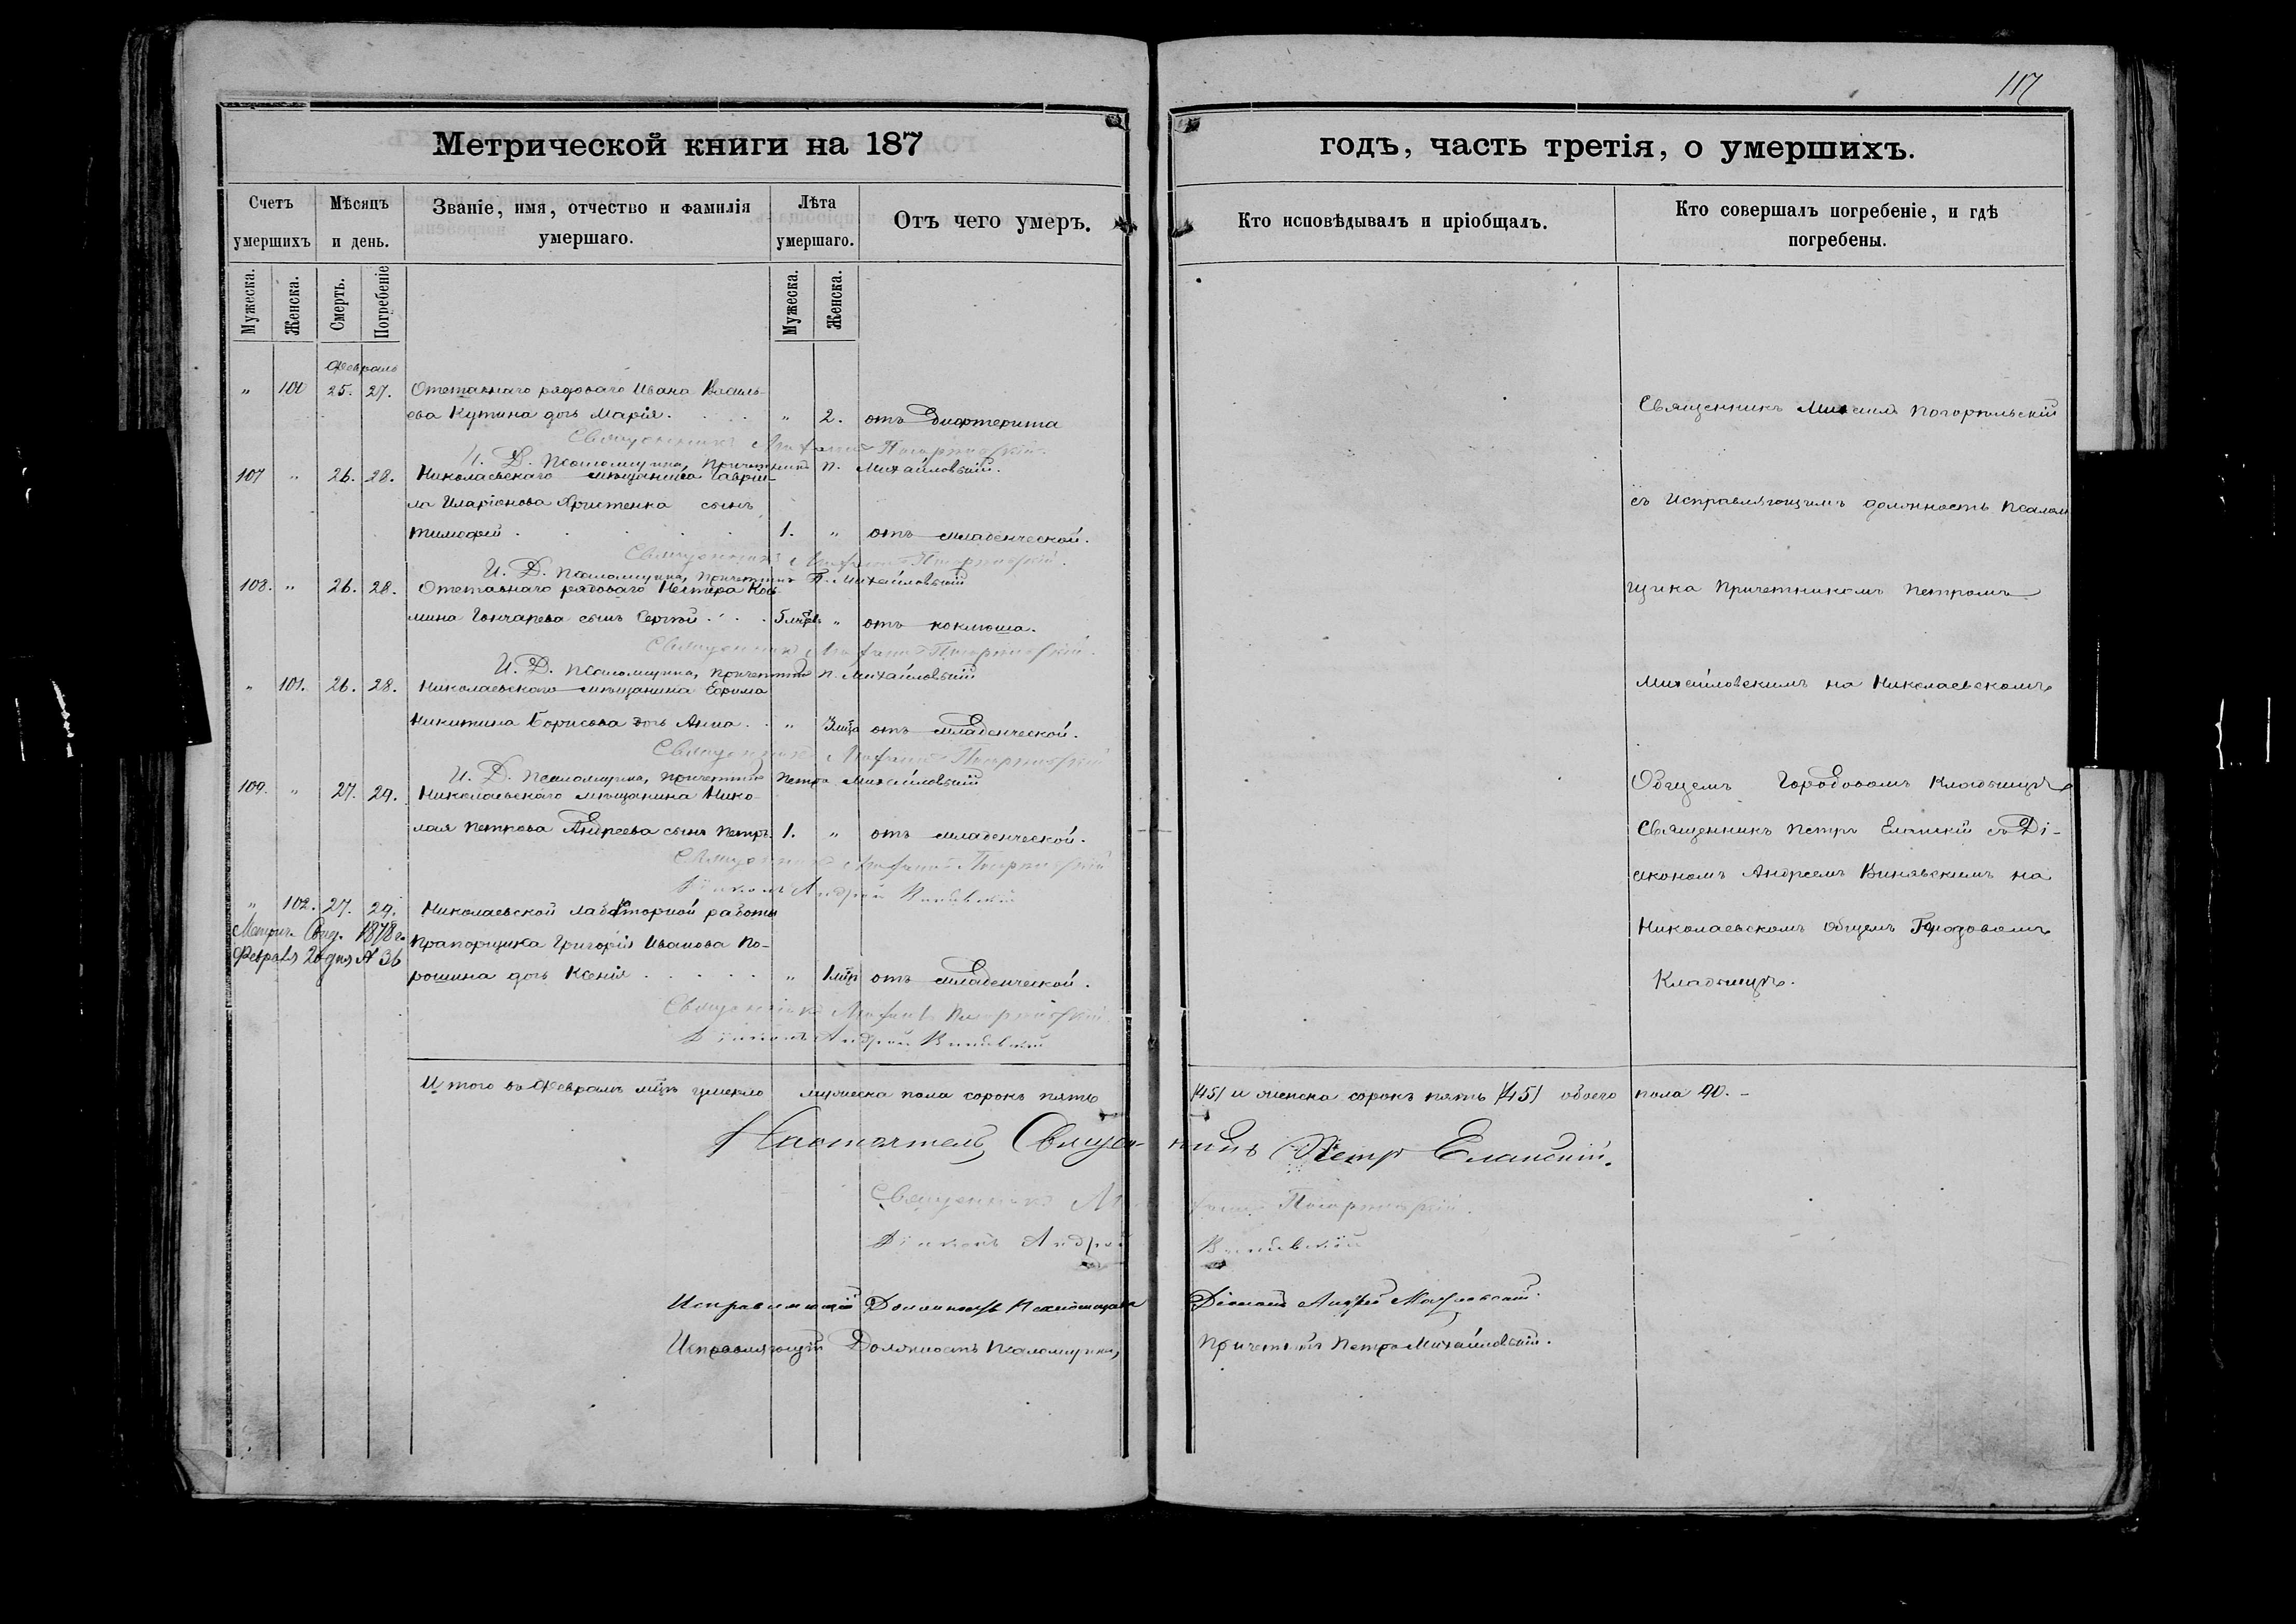 117
Метрической книги на 187
годъ, часть третія, о умершихъ.
Счетъ умершихъ
Мѣсяцъ и день.
Званіе, имя, отчество и фамилія умершаго.
Лѣта умершаго.
Отъ чего умеръ.
Кто исповѣдывалъ и пріобщалъ.
Кто совершалъ погребеніе, и гдѣ погребены.
Мужеска.
Женска.
Смерть.
Погребеніе
Мужеска.
Женска.
Февраль
" 100 25. 27. Отставнаго рядоваго Ивана Василь-
ева Кутина дочь Марія. " 2. отъ дифтерита
Священникъ
И. Д. Псаломщика, Причетникъ П. Михайловскій.
107 " 26. 28. Николаевскаго мѣщанина Гаврiи-
ла Иларіонова сынъ
Тимофей 1. " отъ младенческой.
Священникъ
И. Д. Псаломщика, Причетникъ П. Михайловскій
108. " 26. 28. Отставнаго рядоваго Нестера Кось-
мина Гончарева сынъ Сергѣй 5 " отъ коклюша.
Священникъ
И. Д. Псаломщика, Причетникъ П. Михайловскій
" 101. 26. 28. Николаевскаго мѣщанина Ефима
Никитина Борисова дочь Анна " 3 отъ младенческой.
Священникъ
И. Д. Псаломщика, Причетникъ Петръ Михайловскій
109. " 27. 29. Николаевскаго мѣщанина Нико-
лая Петрова Андреева сынъ Петръ. 1. " отъ младенческой.
Священникъ
Діаконъ Андрей
" 102. 27. 29. Николаевской работы
Метрич. Свид. 1878 г.
Февраля 20 дня № 36
Прапорщика Григорія Иванова По-
рошина дочь Ксенія " 1 отъ младенческой.
Священникъ
Діаконъ Андрей
Священникъ Михаилъ Погорѣльскій
съ Исправляющимъ должность Псалом
щика Причетникомъ Петромъ
Михайловскимъ на Николаевскомъ
Общемъ Городовомъ Кладбищѣ
Священникъ Петръ Еланскій съ Ді-
акономъ Андреемъ на
Николаевскомъ Общемъ Городовомъ
Кладбищѣ.
Итого въ Февралѣ умерло мужеска пола сорокъ пять (45) и женска сорокъ пять (45) обоего пола 90. -
Настоятель Священникъ Петръ Еланскій.
Священникъ
Діаконъ Андрей
Исправляющій Должность Псаломщика Діаконъ Андрей
Исправляющій Должность Псаломщика, Причетникъ Петръ Михайловскій.